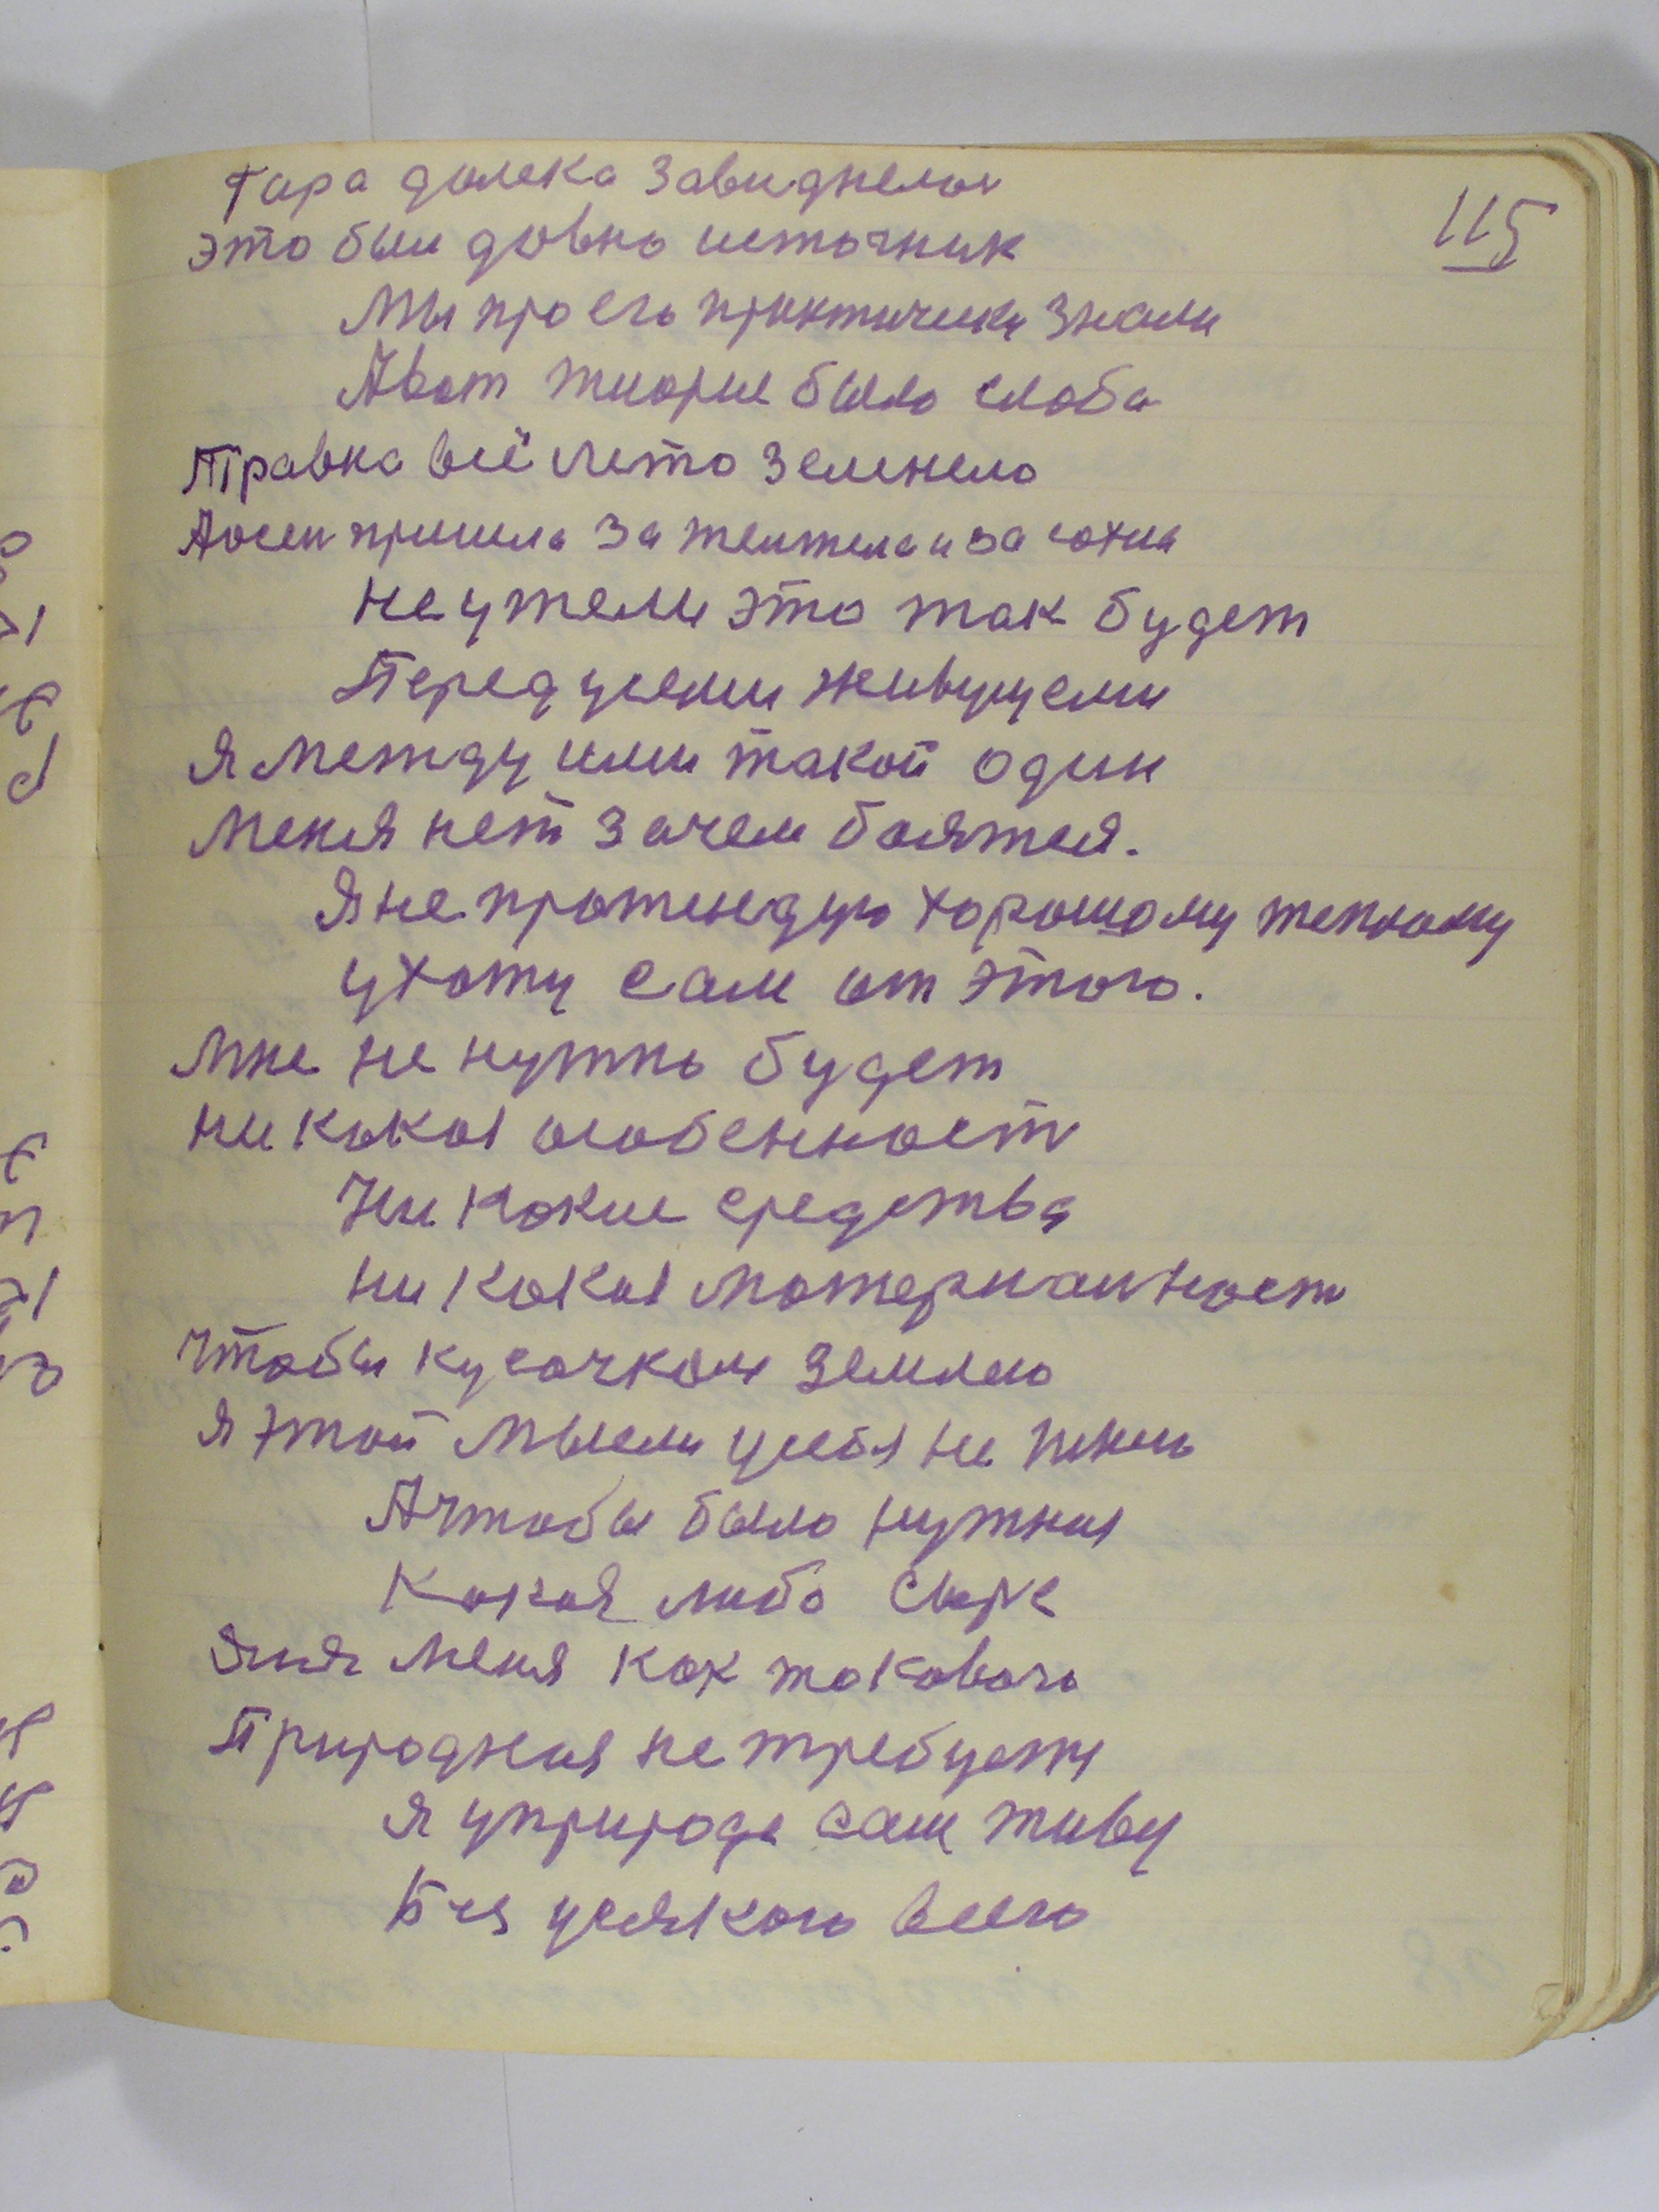 Гара далека завиднелас
115
это был давно источник
Мы про его практически знали
Авот теория было слаба
Травка всё лето зеленела
Аосен пришла за желтела и за сохла
Неужели это так будет
Перед усеми живущеми
Я между ими такой один
Меня нет зачем боятся.
Я не протендую хорошому теплому
ухожу сам от этого.
Мне не нужно будет
ни какая особенност
Ни какие средства
ни какая материалност
Чтобы кусочком землею
Я этой мысли усебя не
Ачтобы было нужная
Какая либо сыре
меня как таковаго
Природная не требует
Я уприроде сам живу
Без усякого всего